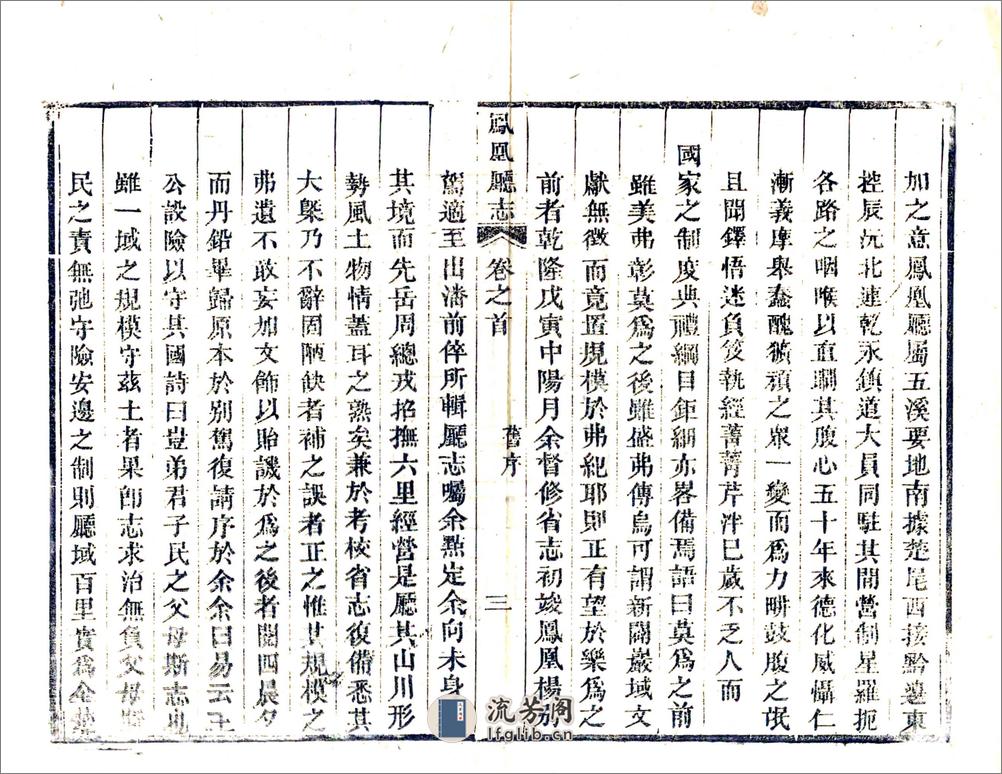 加之意鳳凰廳屬五溪要地南據楚尾西接黔邊東
控辰沅北連乾永鎮道大員同駐其間營制星羅扼
各路之咽喉以直闢其腹心五十年來德化威懾仁
漸義摩舉蠢醜獷頑之眾一變而為力畊鼓腹之氓
且聞鐸悟迷負笈執經菁菁芹泮巳歲不乏人而
國家之制度典禮綱目鉅細亦畧備焉語曰莫為之前
雖美弗彰莫為之後雖盛弗傳烏可謂新闢嚴域文
獻無徵而竟置規模於弗紀耶則正有望於樂為之
前者乾隆戊寅中陽月余督修省志初竣鳳凰楊別
鳳凰廳志 卷之首 舊序 三
駕適至出潘前倅所輯廳志囑余點定余向未身
其境而先岳周總戎招撫六里經營是廳其山川形
勢風土物情蓋耳之熟矣兼於考校省志復備悉其
大槩乃不辭固陋缺者補之誤者正之惟其規模之
弗遺不敢妄加文飾以貽譏於為之後者閱四晨夕
而丹鉛畢歸原本於別駕復請序於余余曰易云王
公設險以守其國詩曰豈弟君子民之父母斯志也
雖一域之規模守茲土者果卽志求治無負父母斯
民之責無弛守險安邊之制則廳域百里實為全楚
流芳阁
lfglib.cn